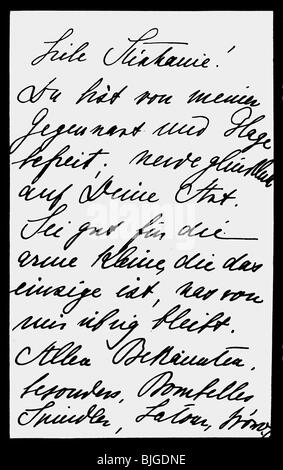 Liebe Stephanie!
Du bist von meiner
Gegenwart und Plage
befreit; werde glücklich
auf Deine Art.
Sei gut für die
arme Kleine, die das
einzige ist, was von
mir übrig bleibt.
Allen Bekannten,
besonders, Bombelles
Spindler, Latour,
alamy
Image ID: BJGDNE
www.alamy.com